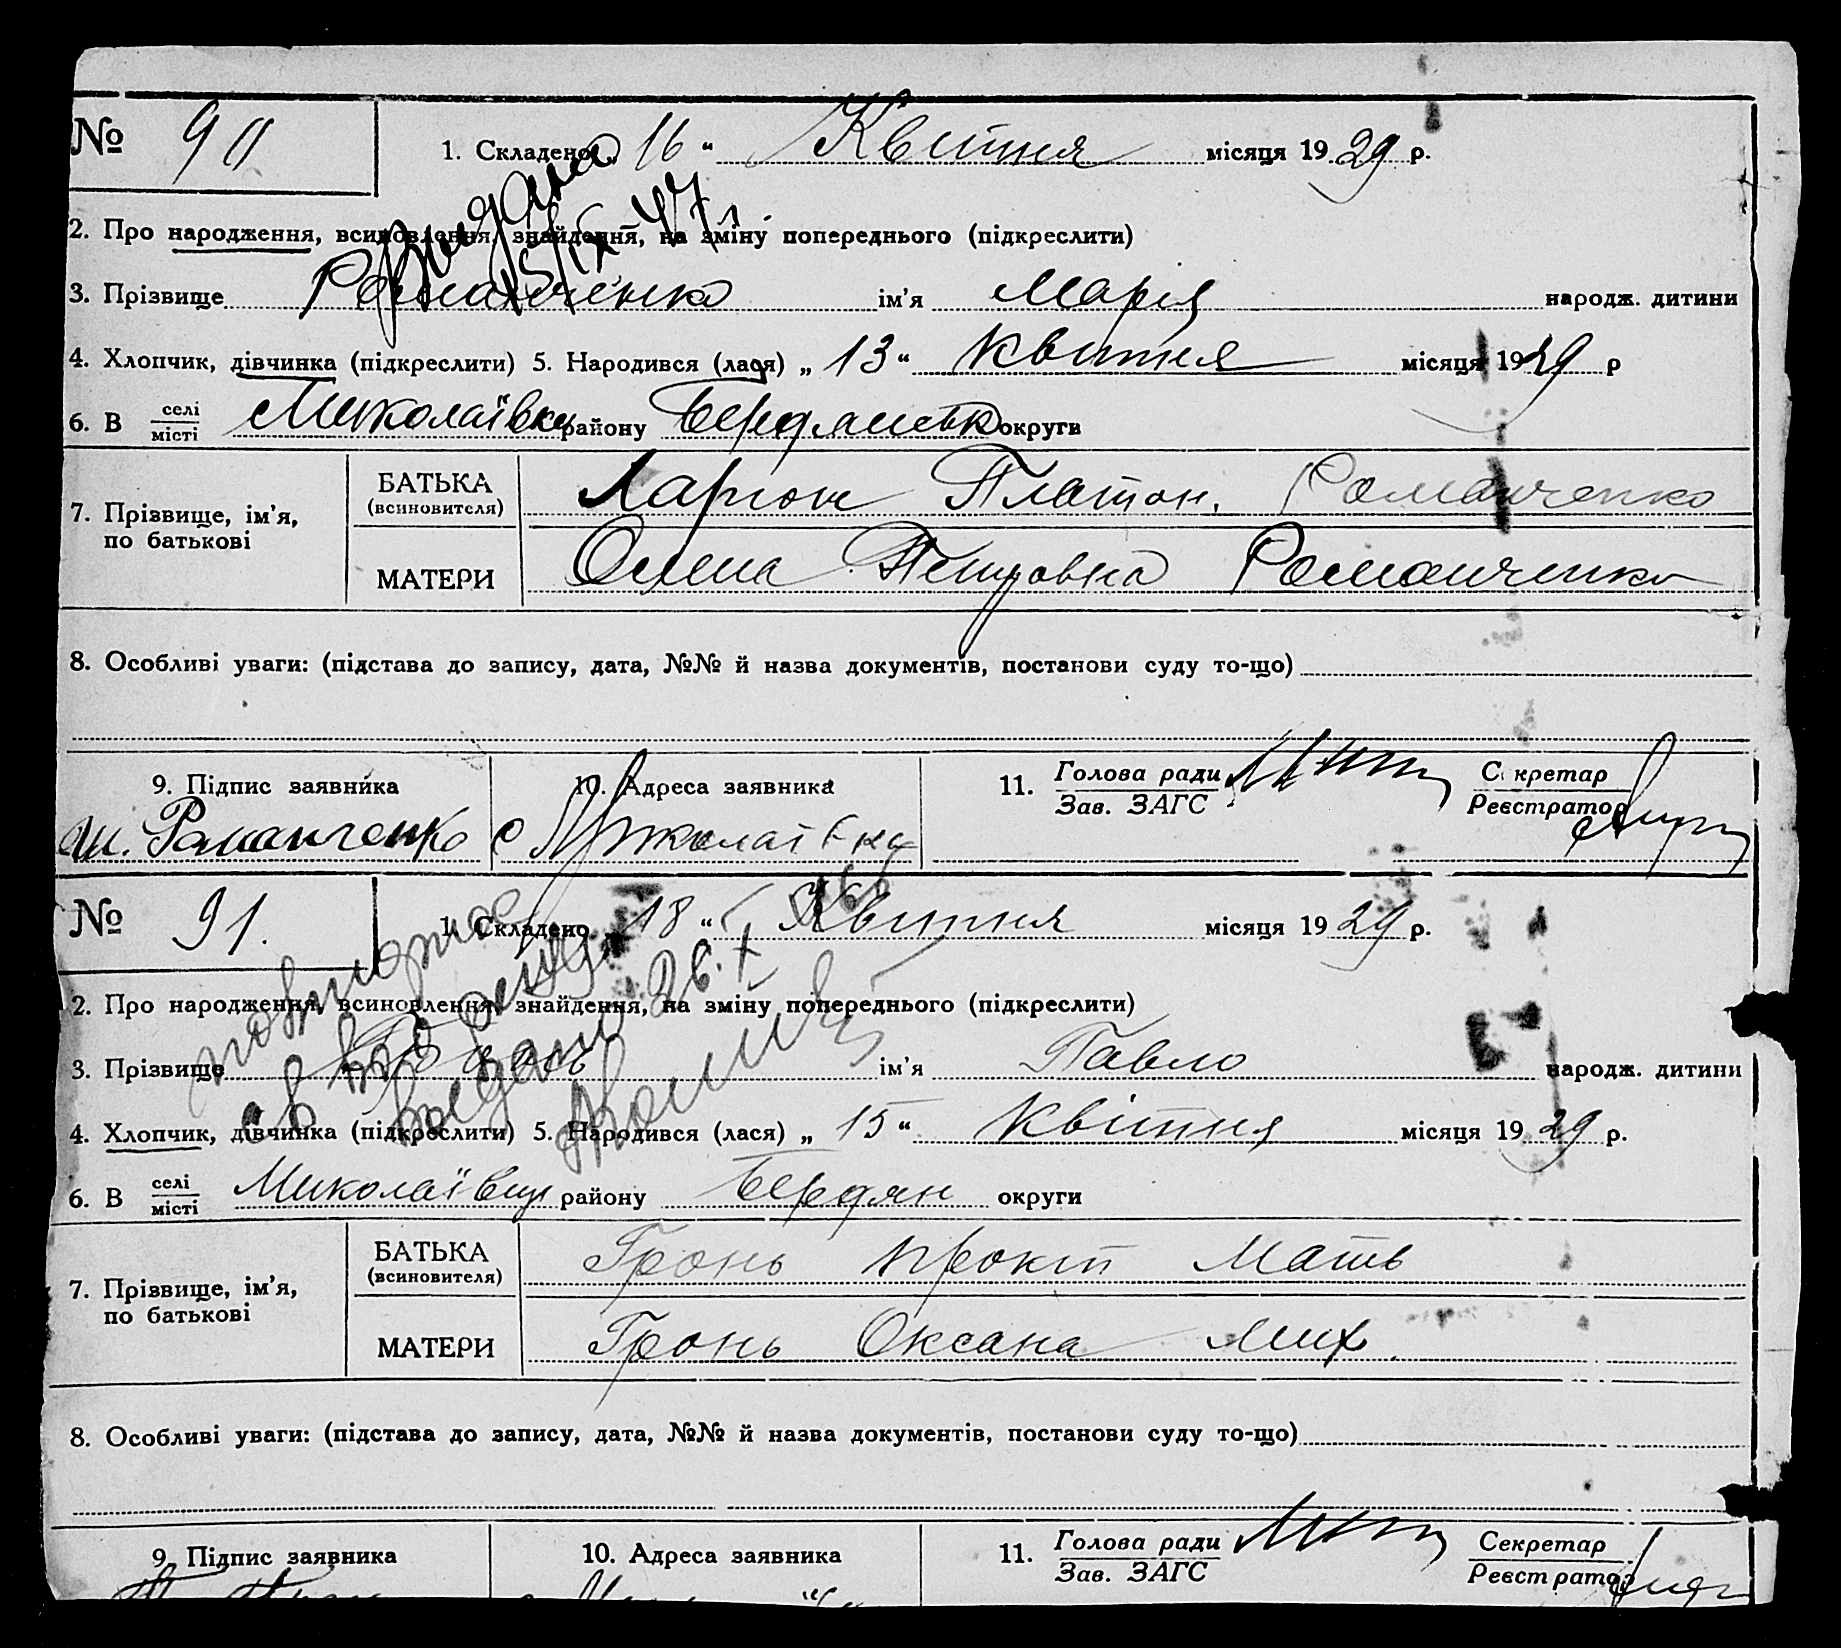 № 90
1. Складено „ 16 “ Квітня місяця 1929 р.
Видано
15/IX-47 г.
2. Про народження, всиновлення, знайдення, на зміну попереднього (підкреслити)
3. Прізвище Романченко ім'я Марія народж. дитини
4. Хлопчик, дівчинка (підкреслити) 5. Народився (лася) „ 13 “ Квітня місяця 1929 р
6. В селі місті Миколаївка району Бердянськ округи
7. Прізвище, ім'я, по батькові
БАТЬКА (всиновителя) Ларіон Платон. Романченко
МАТЕРИ Олена Петровна Романченко
8. Особливі уваги: (підстава до запису, дата, №№ й назва документів, постанови суду то-що)
9. Підпис заявника
10. Адреса заявника
11. Голова ради Зав. ЗАГС Секретар Реєстратор
Романченко с Миколаївка
№ 91.
1. Складено „ 18 “ Квітня місяця 1929 р.
повторное
св во
видано 26.X
2. Про народження, всиновлення, знайдення, на зміну попереднього (підкреслити)
3. Прізвище ім'я Павло народж. дитини
4. Хлопчик, дівчинка (підкреслити) 5. Народився (лася) „ 15 “ Квітня місяця 1929 р.
6. В селі місті Миколаївці району Бердян округи
7. Прізвище, ім'я, по батькові
БАТЬКА (всиновителя) Гронь Прокіп Матв
МАТЕРИ Гронь Оксана Мих.
8. Особливі уваги: (підстава до запису, дата, №№ й назва документів, постанови суду то-що)
9. Підпис заявника
10. Адреса заявника
11. Голова ради Зав. ЗАГС Секретар Реєстратор